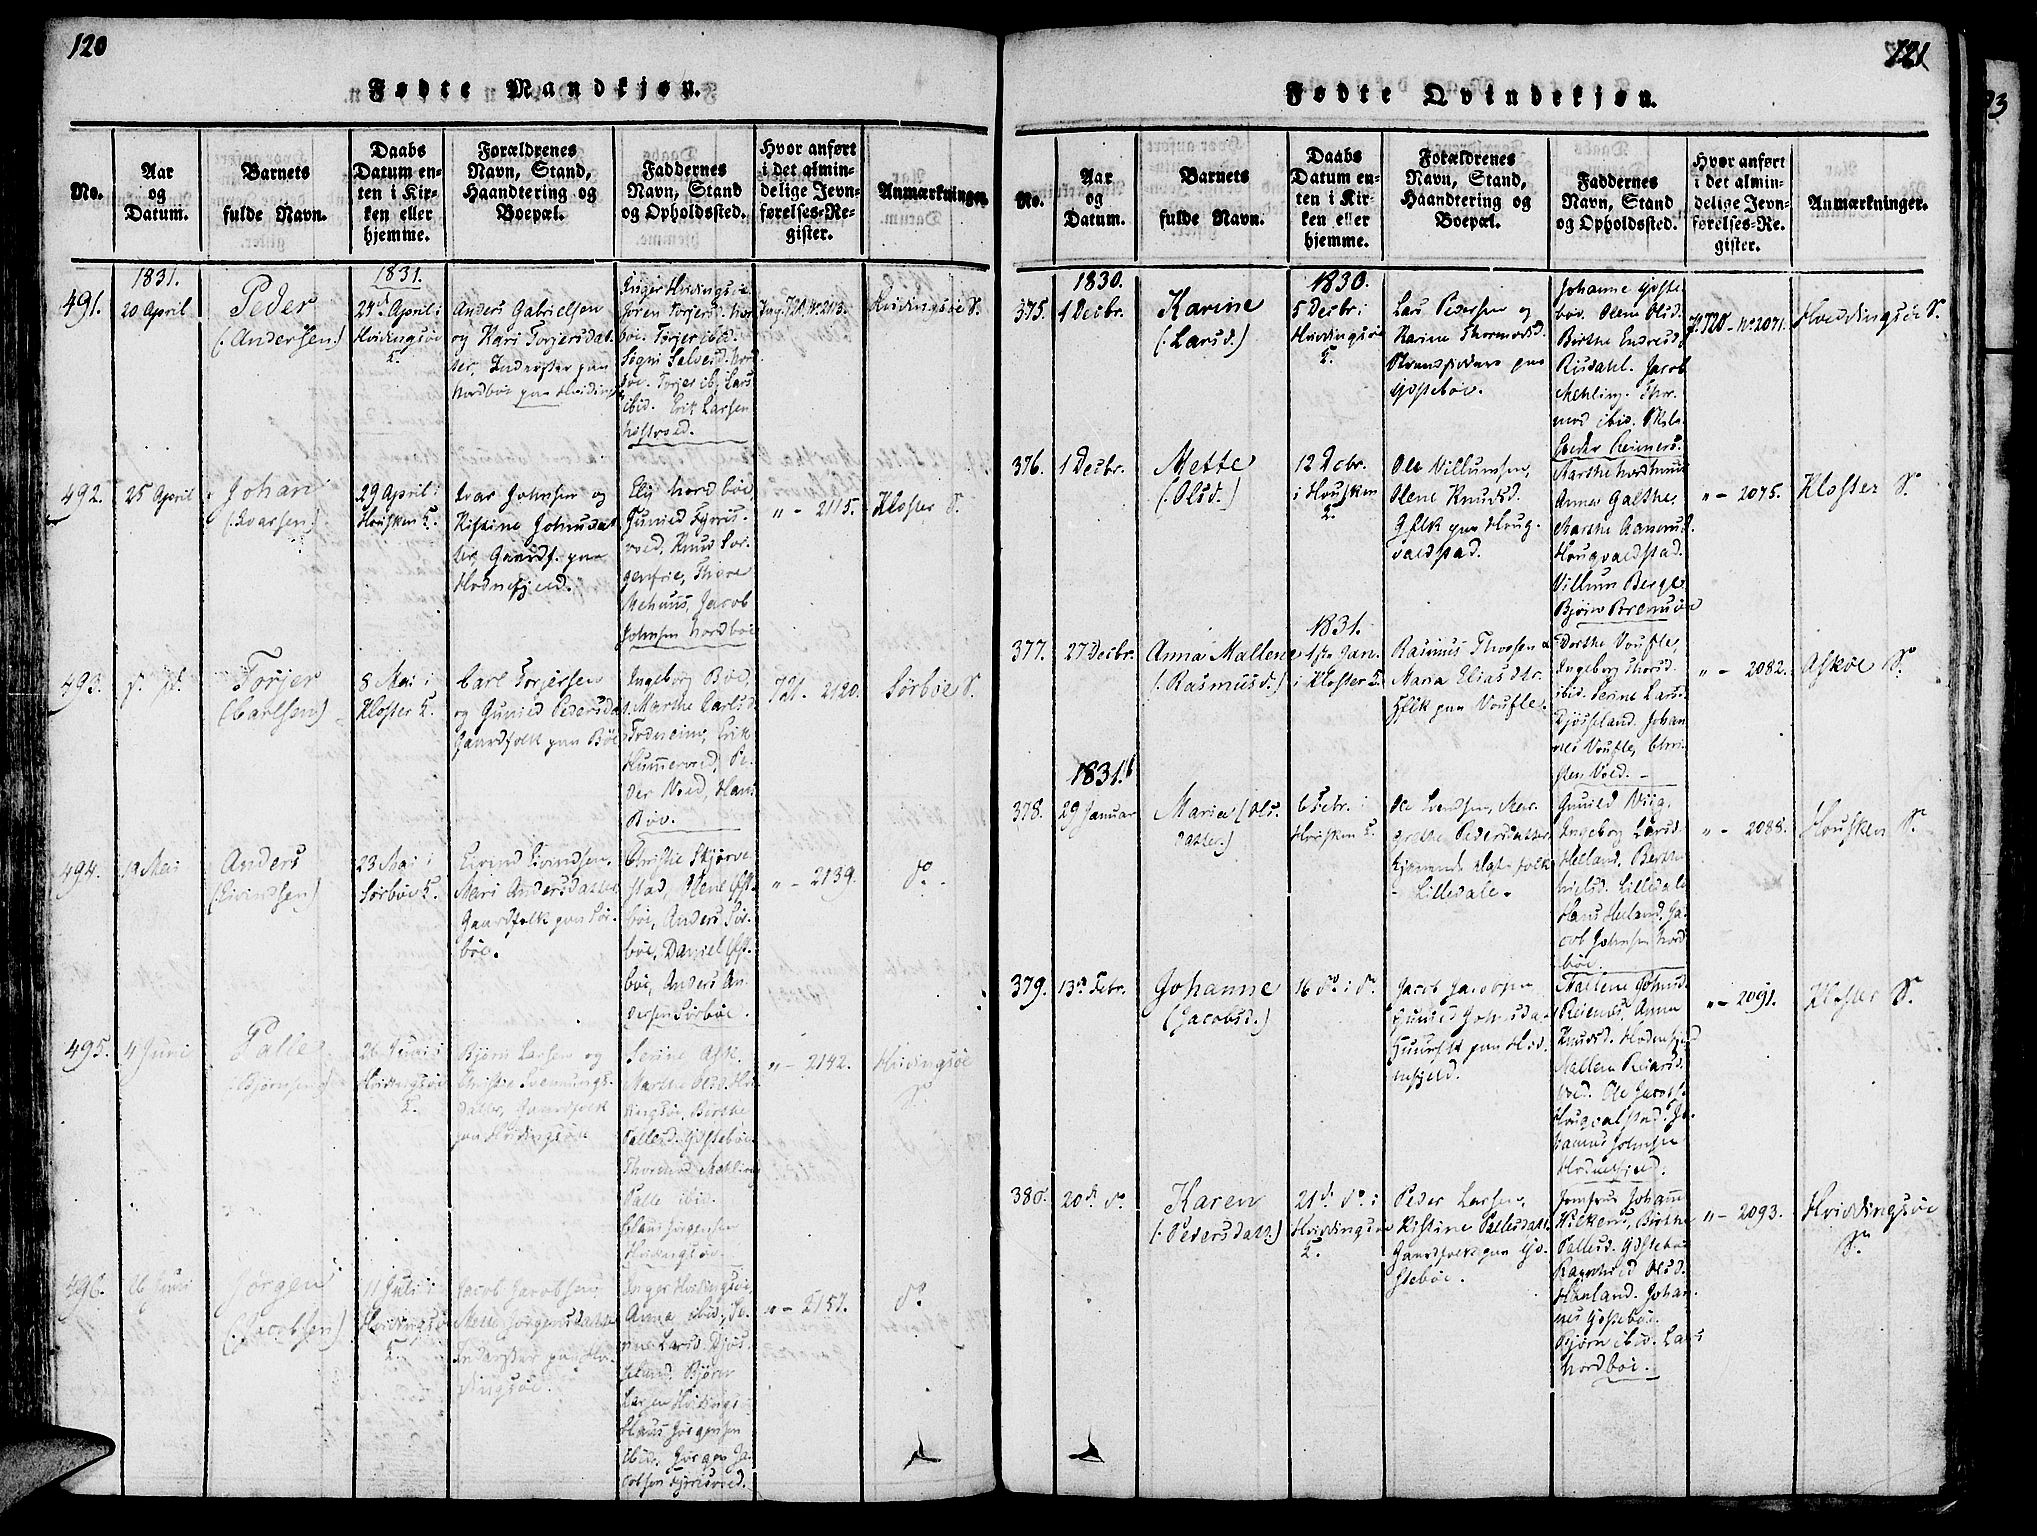 120
Fødte Mandkjøn.
No.
Aar
og
Datum.
Barnets
fulde Navn.
Daabs
Datum en-
ten i Kir-
ken eller
hjemme.
Forældrenes
Navn, Stand,
Haandtering og
Boepæl.
Faddernes
Navn, Stand
og Opholdssted.
Hvor anført
i det almin-
delige Jevn-
førelses-Re-
gister.
Anmærkninger.
1831.
1831.
491.
20 April
Peder
(Andersen.)
24d April i
Hvidingsøe
K.
Anders Gabrielsen
og Kari Torjersdat-
ter, Inderster paa
Nordbøe paa Hviding
Inger Hvidingsøe
Søren Torjersd. Nor
bøe. Torjer ibid.
Nordbøe. Torjer ibd. Lars
ibid. Erik Larsen
Pag. 720. Nr. 2113.
Hvidingsøe S.
492.
25 April
Johan
(Ivarsen.)
29 April i
Housken K.
Ivar Johnsen og
Kistine Johnsdat
ter, Gaardf. paa
Hodnefjeld.
Elig Nordbøe
Gunild Fyrres-
voed, Knud Sor-
genfrie, Thore
Mehuus, Jacob
Johnsen Nordbøe
" - 2115.
Kloster S.
493.
Torjer
(Carlsen)
8 Mai i
Kloster K.
Carl Torjersen
og Gunild Pedersdat
Gaardfolk paa Bøe
Ingeborg Bøe,
Marthe Carlsd.
Todneim, Erik
Hummervoed, Pe-
der Voed, Hans
Bøe.
721. 2120.
Sørbøe S.
494.
19 Mai
Anders
(Eivindsen)
23 Mai i
Sørbøe K.
Eivind Eivindsen,
Mari Andersdatter
Gaardfolk paa Sør-
bøe.
Christie Skjørve
stad, Lene Øst-
bøe, Anders Sør-
bøe, Daniel Øst-
bøe, Anders An-
dersen Sørbøe.
" - 2139.
do
495.
4 Juni
Palle
(Bjørnsen)
26 Juni i
Hvidingsøe
K.
Bjørn Larsen og
Christie Svennungs-
datter, Gaardfolk
paa Hvidingsøe
Serine Ask.
Marthe Olsd. Hvi
dingsøe, Birthe
Pallesd. Gostebøe
Thormod Mehling
Palle ibid.
Claus Jørgensen
Hvidingsøe
" - 2142.
Hvidingsøe
S.
496.
26 Juni
Jørgen
(Jacobsen)
11 Juli i
Hvidingsø
K.
Jacob Jacobsen,
Mette Jørgensdatter
Inderster paa Hvi-
dingsøe.
Inger Hvidingsøe,
Anna ibid., Se-
rine Larsd. Djøs-
seland. Bjørn
Larsen Hvidings-
Claus Jørgensen
ibid. Jørgen Ja-
cobsen Fyrresvoed.
" - 2157.
do
121
Fødte Qvindekjøn.
No.
Aar
og
Datum.
Barnets
fulde Navn.
Daabs
Datum en-
ten i Kir-
ken eller
hjemme.
Forældrenes
Navn, Stand,
Haandtering og
Boepæl.
Faddernes
Navn, Stand
og Opholdssted.
Hvor anført
i det almin-
delige Jevn-
førelses-Re-
gister.
Anmærkninger.
1830.
1830.
375.
1 Decbr.
Karine
(Larsd.)
5 Decbr. i
Hvidingsøe
K.
Lars Pedersen og
Karine Thormodsd.
Gostebøe.
Johanne Goste-
bøe. Olene Olsd.
Birthe Endresd.
Risdahl. Jacob
Mehling. Thor-
mod ibid.
Peder Reiners.
P. 720 - No 2071.
Hvidingsøe S.
376.
1 Decbr.
Mette
(Olsd.)
12 Dcbr.
i Housken
K.
Ole Villumsen,
Olene Knudsd.
Gflk paa Houg-
valdstad.
Marthe Nordhuus
Anna Galthe,
Marthe Aamund.
Hougvaldstad.
Villum Berge,
Bjørn Bremnøe
" - 2075.
Kloster S.
1831.
377.
27 Decbr.
Anna Mallene
(Rasmusd.)
1ste Jan.
i Kloster K.
Rasmus Thorsen &
Maria Eliasdtr.
Gflk paa Voufle.
Dorthe Voufle,
Ingeborg Thorsd.
ibid. Serine Larsd.
Djøssland. Johan-
nes Voufle, Chri-
sten Voed.
" - 2082.
Askøe S.
1831.
378.
29 Januar
Maria (Ols-
datter.)
6 Febr. i
Housken K.
Ole Svendsen, Mar-
grethe Pedersdatter
Lilledale.
Gunild Viig,
Ingeborg Larsd.
Helland, Berthe
Nielsd. Lilledale
Hans Helland. Ja-
cob Johnsen Nord
bøe.
" - 2088.
Housken S.
379.
13d Febr.
Johanne
(Jacobsd.)
16 do i do
Jacob Jacobsen
Gunild Johnsda.
Huusflk paa Hod-
nefjeld.
Mallene Johnsd.
Reienæs, Anna
Knudsd. Hodnefjeld
Mallene Reiersd.
Voed. Ole Jacobs.
Hougvalstad. Jo-
hannes Johnsen
Hodnefjeld.
" - 2091.
Kloster S.
380.
20d do
Karen
(Pedersdatt.)
21d do i
Hvidingsøe
K.
Peder Larsen,
Kistine Pallesdatt.
Gaardfolk paa Go-
stebøe.
Jomfrue Johanne
Hilkens, Birthe
Pallesd. Gostebøe
Ragnhild Olsd.
Haaland. Johan-
nes Gostebøe.
Bjørn ibid. Lars
Nordbøe.
" - 2093.
Hvidingsøe
S.